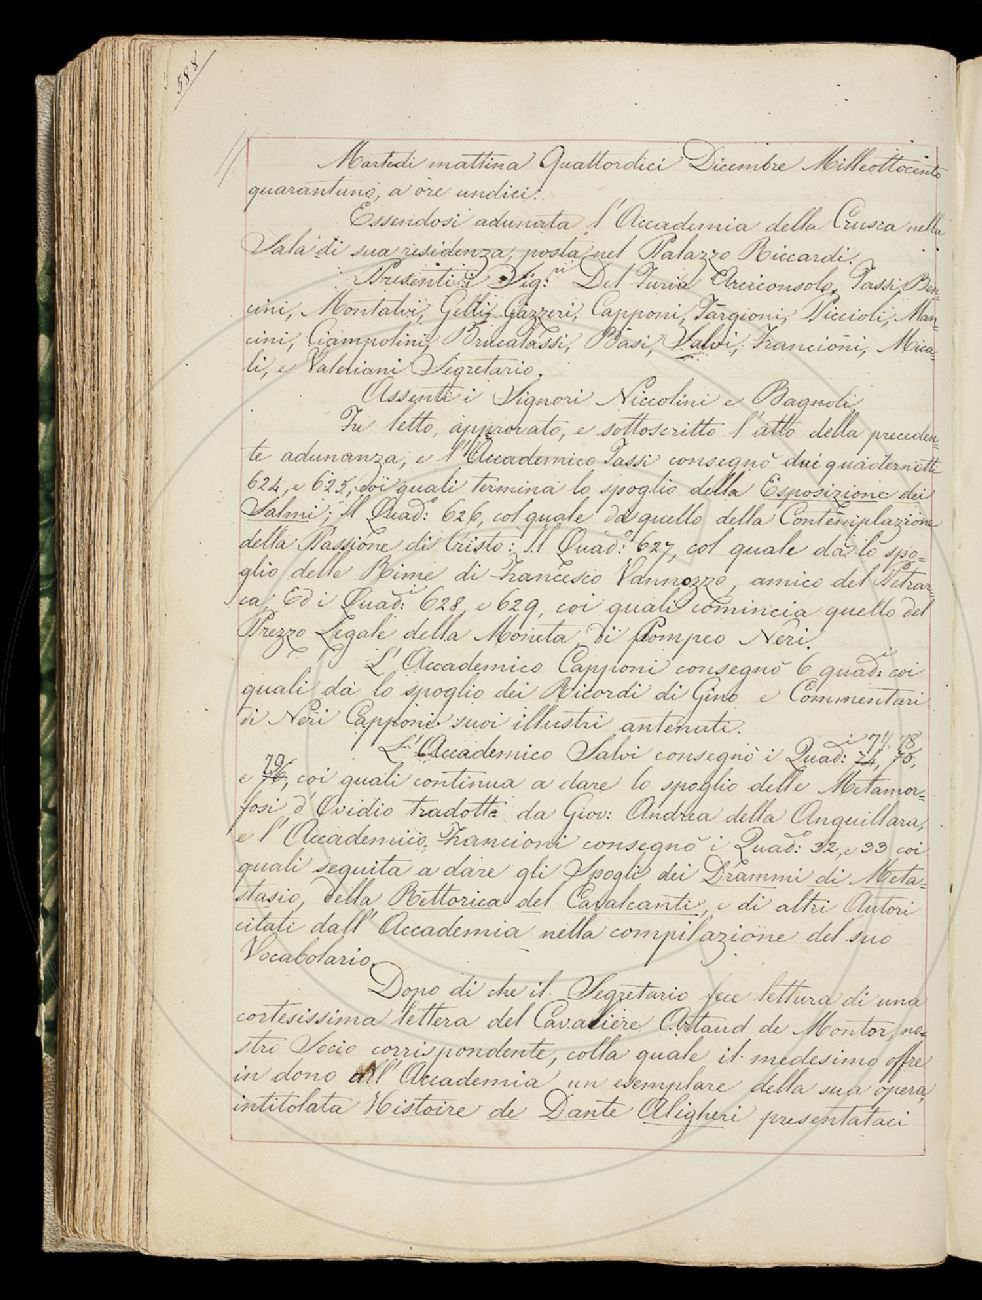 588
Martedi mattina Quattordici Dicembre Milleottocento
quarantuno, a ore undici.
Essendosi adunata l'Accademia della Crusca nella
Sala di sua residenza, posta nel Palazzo Riccardi.
Presenti i Sig:ri Del Furia Arciconsolo, Tassi, Ben=
cini, Montalvi, Gelli, Gazzeri, Capponi, Targioni, Piccioli, Man=
cini, Ciampolini, Brucalassi, Basi, Salvi, Francioni, Mica=
li, e Valeriani Segretario.
Assenti i Signori Niccolini e Bagnoli.
Fu letto, approvato, e sottoscritto l'atto della preceden=
te adunanza; e l'Accademico Tassi consegnò due quadernetti
624, e 625, coi quali termina lo spoglio della Esposizione dei
Salmi; Il Quad: 626, col quale dà quello della Contemplazione
della Passione di Cristo; Il Quad:o 627, col quale dà lo spo=
glio delle Rime di Francesco Vannozzo, amico del Petrar=
ca; Ed i Quad: 628, e 629, coi quali comincia quello del
Prezzo Legale della Moneta di Pompeo Neri.
L'Accademico Capponi consegnò 6 quad: coi
quali dà lo spoglio dei Ricordi di Gino e Commentari
di Neri Capponi suoi illustri antenati.
L'Accademico Salvi consegnò i Quad:i 77, 78
74, 75,
e 79 76, coi quali continua a dare lo spoglio delle Metamor=
fosi d'Ovidio tradotte da Giov: Andrea della Anguillara,
e l'Accademico Francioni consegnò i Quad: 32, e 33 coi
quali seguita a dare gli Spogli dei Drammi di Meta=
stasio, della Rettorica del Cavalcanti, e di altri Autori
citati dall'Accademia nella compilazione del suo
Vocabolario.
Dopo di che il Segretario fece lettura di una
cortesissima lettera del Cavaliere Artaud de Montor, no=
stro Socio corrispondente, colla quale il medesimo offre
in dono all'Accademia un esemplare della sua opera,
intitolata Histoire de Dante Aligheri presentataci